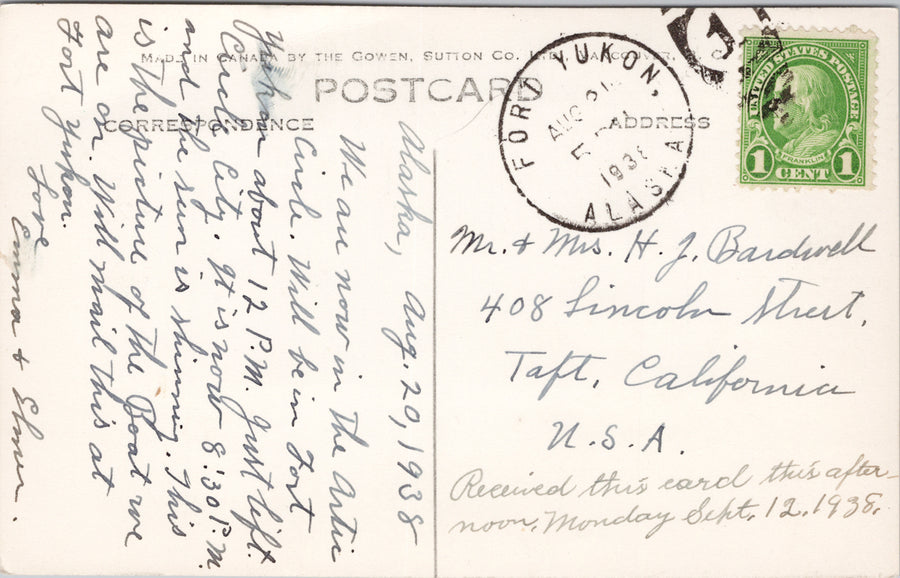 MADE IN CANADA BY THE GOWEN, SUTTON CO. LTD., VANCOUVER,
POSTCARD
CORRESPONDENCE
ADDRESS
Alaska, Aug. 20, 1938
We are now in the Artic
Circle. Will be in Fort
Yukon about 12 P.M. Just left
Circle City. It is now 8:30 P.M.
and the sun is shinning. This
is the picture of the Boat we
are on. Will mail this at
Fort Yukon.
Love
Emma & Elmer.
FORT YUKON,
AUG 21
1938
ALASKA
UNITED STATES POSTAGE
FRANKLIN
1 CENT 1
Mr. & Mrs. H. J. Bardwell
408 Lincoln Street,
Taft, California
U.S.A.
Received this card this after-
noon, Monday Sept. 12, 1938.